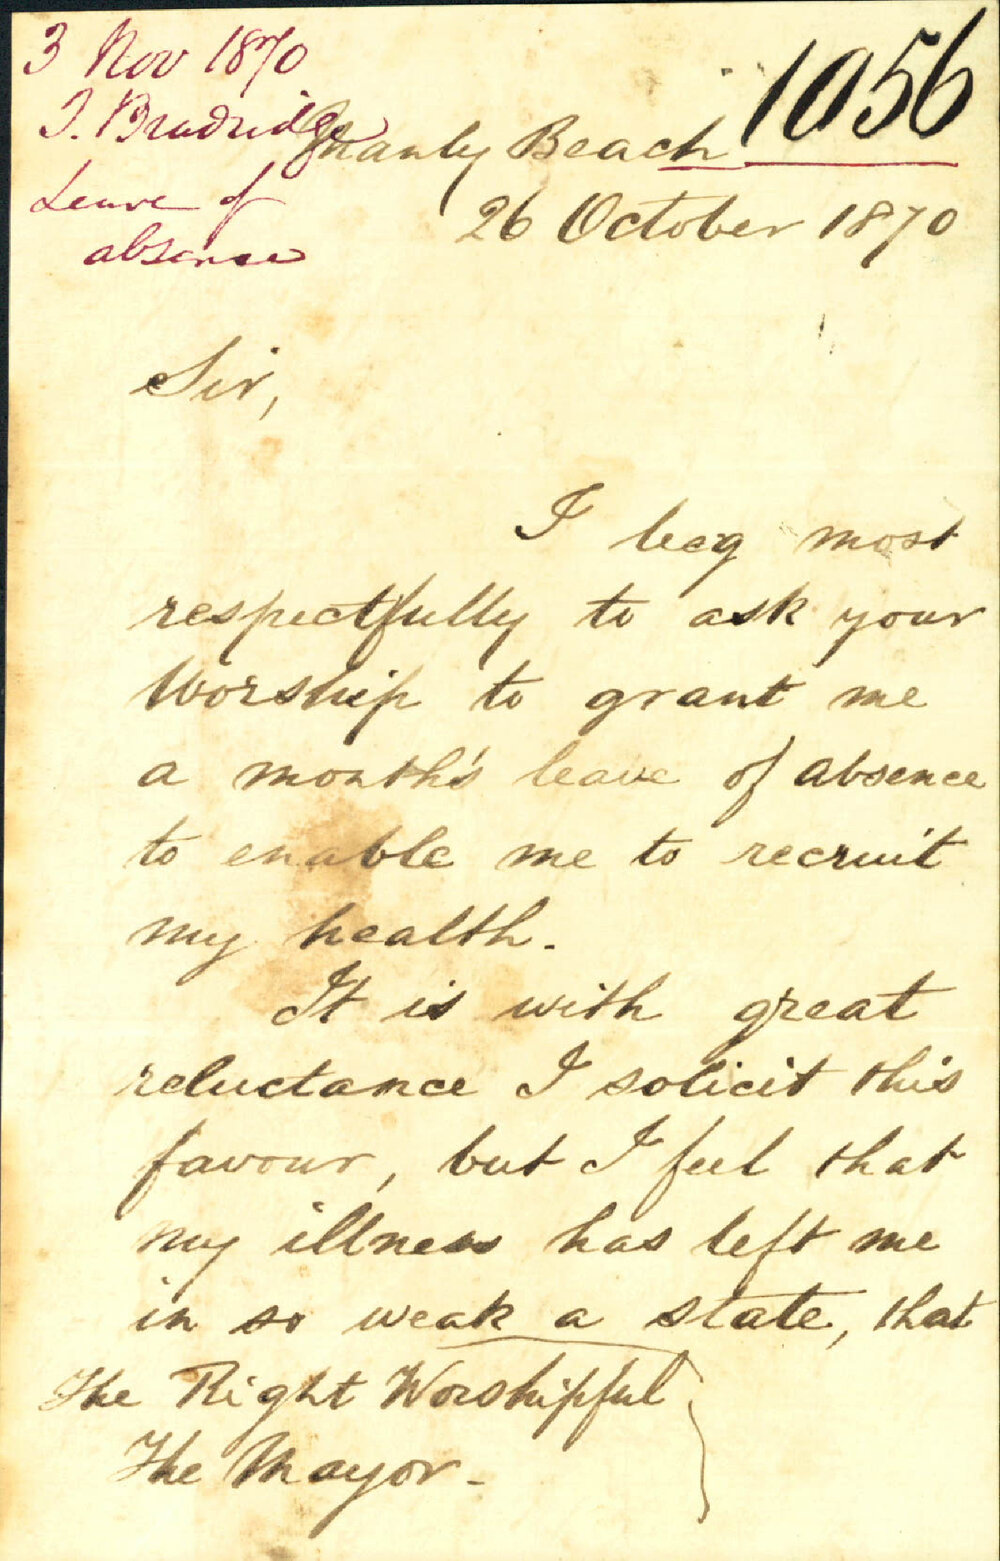 3 Nov 1870
T. Bradridge
Leave of
absence
1056
Manly Beach
26 October 1870
Sir,
I beg most
respectfully to ask your
Worship to grant me
a month's leave of absence
to enable me to recruit
my health.
It is with great
reluctance I solicit this
favour, but I feel that
my illness has left me
in so weak a state, that
The Right Worshipful
The Mayor -